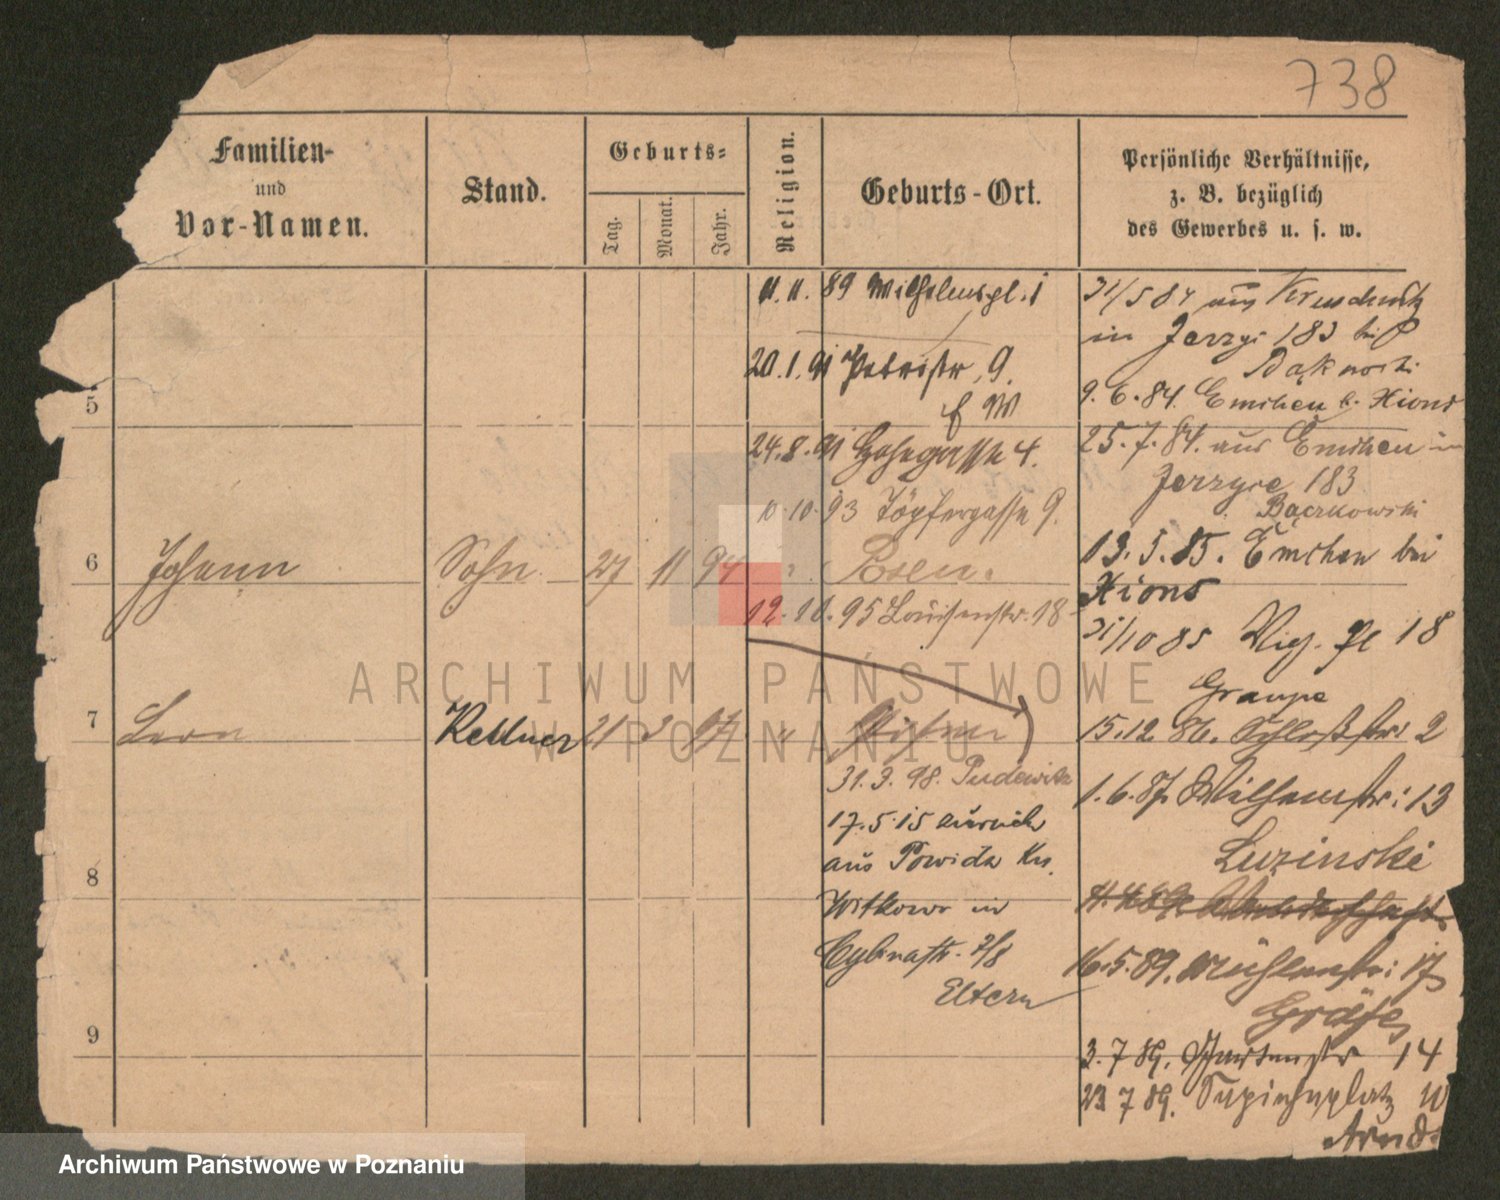 738
Familien-
und
Vor-Namen.
Stand.
Geburts-
Tag.
Monat.
Jahr.
Religion.
Geburts-Ort.
Persönliche Verhältnisse,
z. B. bezüglich
des Gewerbes u. s. w.
11.11.89 Wilhelmspl. 1
20.1.91 Petristr. 9.
f W
24.8.91 Gasse 4.
10.10.93 Töpfergasse 9.
5
6 Johann Sohn 27 11 94 " Posen.
12.10.95 Louisenstr. 18
7 Leon Kellner 21 3 97 " Posen
31.3.98. Pudewitz
17.5.15 zurück
aus Powidz Krs.
Witkowo in
Cybinastr. 7/8
Eltern
8
9
31/5 84 aus
in Jerzyce 183 bei
9.6.84. Emchen b. Xions
25.7.84. aus Emchen in
Jerzyce 183
Bączkowski
13.5.85. Emchen bei
Xions
31/10 85 Pl 18
Graupe
15.12.86. Schloßstr. 2
1.6.87. Wilhelmstr: 13
Luzinski
16.5.89. Mühlenstr: 17
Gräfe
3.7.89. Gartenstr 14
23.7.89. Sapiehaplatz
Arndt
ARCHIWUM PAŃSTWOWE
W POZNANIU
Archiwum Państwowe w Poznaniu